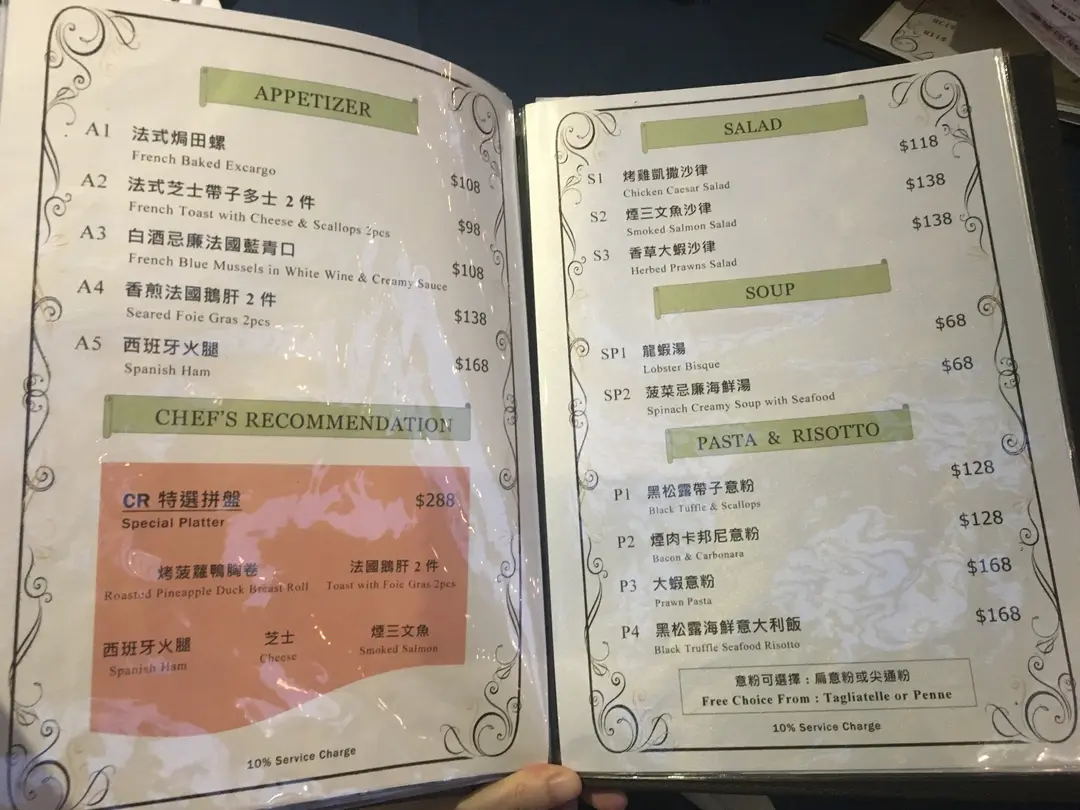 APPETIZER
A1 法式焗田螺
French Baked Excargo $108
A2 法式芝士帶子多士 2 件
French Toast with Cheese & Scallops 2pcs $98
A3 白酒忌廉法國藍青口
French Blue Mussels in White Wine & Creamy Sauce $108
A4 香煎法國鵝肝 2 件
Seared Foie Gras 2pcs $138
A5 西班牙火腿 $168
Spanish Ham
CHEF'S RECOMMENDATION
CR 特選拼盤 $288
Special Platter
烤菠蘿鴨胸卷 法國鵝肝 2 件
Roasted Pineapple Duck Breast Roll Toast with Foie Gras 2pcs
西班牙火腿 芝士 煙三文魚
Spanish Ham Cheese Smoked Salmon
10% Service Charge
SALAD
S1 烤雞凱撒沙律 $118
Chicken Caesar Salad
S2 煙三文魚沙律 $138
Smoked Salmon Salad
S3 香草大蝦沙律 $138
Herbed Prawns Salad
SOUP
SP1 龍蝦湯 $68
Lobster Bisque
SP2 菠菜忌廉海鮮湯 $68
Spinach Creamy Soup with Seafood
PASTA & RISOTTO
P1 黑松露帶子意粉 $128
Black Tuffle & Scallops
P2 煙肉卡邦尼意粉 $128
Bacon & Carbonara
P3 大蝦意粉 $168
Prawn Pasta
P4 黑松露海鮮意大利飯 $168
Black Truffle Seafood Risotto
意粉可選擇：扁意粉或尖通粉
Free Choice From : Tagliatelle or Penne
10% Service Charge